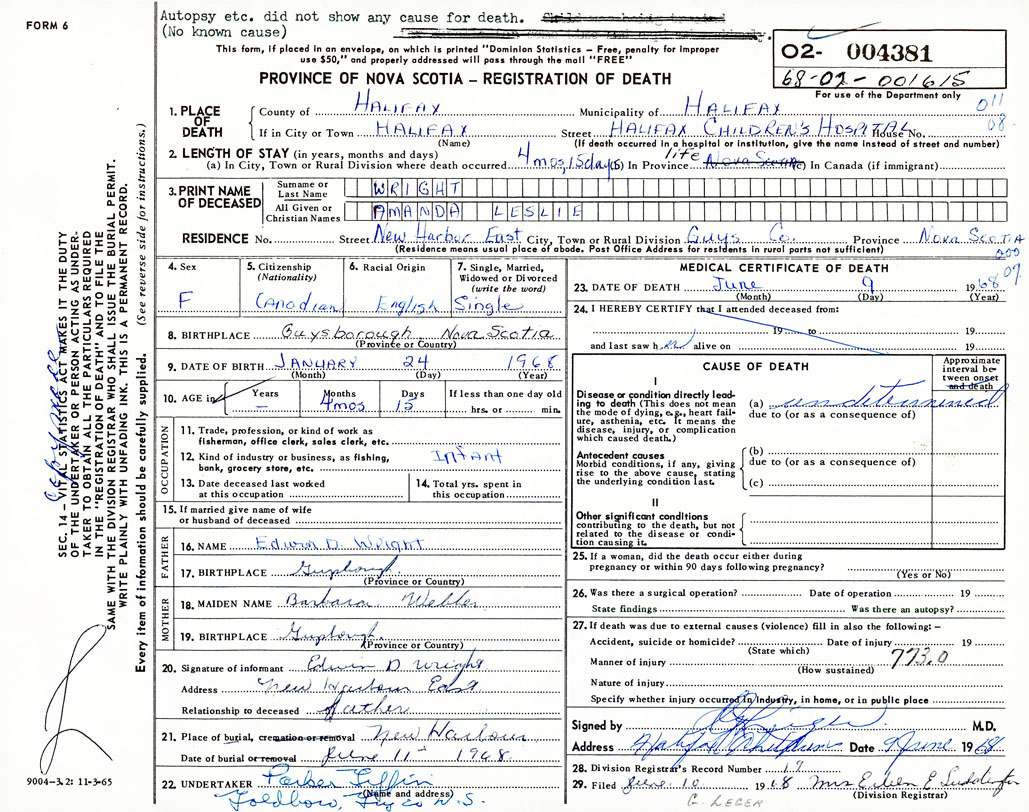 FORM 6
Autopsy etc. did not show any cause for death.
(No known cause)
This form, if placed in an envelope, on which is printed "Dominion Statistics – Free, penalty for improper
use $50," and properly addressed will pass through the mail "FREE"
PROVINCE OF NOVA SCOTIA – REGISTRATION OF DEATH
02- 004381
68-02-001615
For use of the Department only
011
08.
1. PLACE OF DEATH
County of HALIFAX Municipality of HALIFAX
If in City or Town HALIFAX Street HALIFAX CHILDREN'S HOSPITAL House No.
(Name) (If death occurred in a hospital or institution, give the name instead of street and number)
2. LENGTH OF STAY (in years, months and days)
(a) In City, Town or Rural Division where death occurred 4 mos, 15 days (b) In Province life Nova Scotia (c) In Canada (if immigrant)
3. PRINT NAME OF DECEASED
Surname or Last Name WRIGHT
All Given or Christian Names AMANDA LESLIE
RESIDENCE No. Street New Harbor East City, Town or Rural Division Guys Co. Province Nova Scotia
(Residence means usual place of abode. Post Office Address for residents in rural parts not sufficient)
000
07
4. Sex F
5. Citizenship (Nationality) Canadian
6. Racial Origin English
7. Single, Married, Widowed or Divorced (write the word) Single
8. BIRTHPLACE Guysborough Nova Scotia
(Province or Country)
9. DATE OF BIRTH JANUARY 24 1968
(Month) (Day) (Year)
10. AGE in Years – Months 4mos Days 15 If less than one day old hrs. or min.
OCCUPATION
11. Trade, profession, or kind of work as
fisherman, office clerk, sales clerk, etc.
12. Kind of industry or business, as fishing,
bank, grocery store, etc. Infant
13. Date deceased last worked
at this occupation
14. Total yrs. spent in
this occupation
15. If married give name of wife
or husband of deceased
FATHER
16. NAME Edwin D. Wright
17. BIRTHPLACE
(Province or Country)
MOTHER
18. MAIDEN NAME Barbara
19. BIRTHPLACE
(Province or Country)
20. Signature of informant Edwin D Wright
Address New Harbour East
Relationship to deceased father
21. Place of burial, cremation or removal New Harbour
Date of burial or removal June 11 1968
22. UNDERTAKER
(Name and address)
N.S.
MEDICAL CERTIFICATE OF DEATH
23. DATE OF DEATH June 9 1968
(Month) (Day) (Year)
24. I HEREBY CERTIFY that I attended deceased from:
19 to 19
and last saw her alive on 19
CAUSE OF DEATH
Approximate interval between onset and death
I
Disease or condition directly leading
to death (This does not mean
the mode of dying, e.g., heart failure,
asthenia, etc. It means the
disease, injury, or complication
which caused death.)
(a) undetermined
due to (or as a consequence of)
Antecedent causes
Morbid conditions, if any, giving
rise to the above cause, stating
the underlying condition last.
(b)
due to (or as a consequence of)
(c)
II
Other significant conditions
contributing to the death, but not
related to the disease or condition
causing it.
25. If a woman, did the death occur either during
pregnancy or within 90 days following pregnancy?
(Yes or No)
26. Was there a surgical operation? Date of operation 19
State findings Was there an autopsy?
27. If death was due to external causes (violence) fill in also the following: –
Accident, suicide or homicide? Date of injury 19
(State which)
773.0
Manner of injury
(How sustained)
Nature of injury
Specify whether injury occurred in Industry, in home, or in public place
Signed by M.D.
Address Date 9 June 1968
28. Division Registrar's Record Number 17
29. Filed June 10 1968 Mrs
(Division Registrar)
G. LEGER
SEC. 14 – VITAL STATISTICS ACT MAKES IT THE DUTY
OF THE UNDERTAKER OR PERSON ACTING AS UNDERTAKER
TO OBTAIN ALL THE PARTICULARS REQUIRED
IN THE "REGISTRATION OF DEATH" AND TO FILE THE
SAME WITH THE DIVISION REGISTRAR WHO SHALL ISSUE THE BURIAL PERMIT.
WRITE PLAINLY WITH UNFADING INK. THIS IS A PERMANENT RECORD.
Every item of information should be carefully supplied. (See reverse side for instructions.)
9004–3.2: 11-3-65